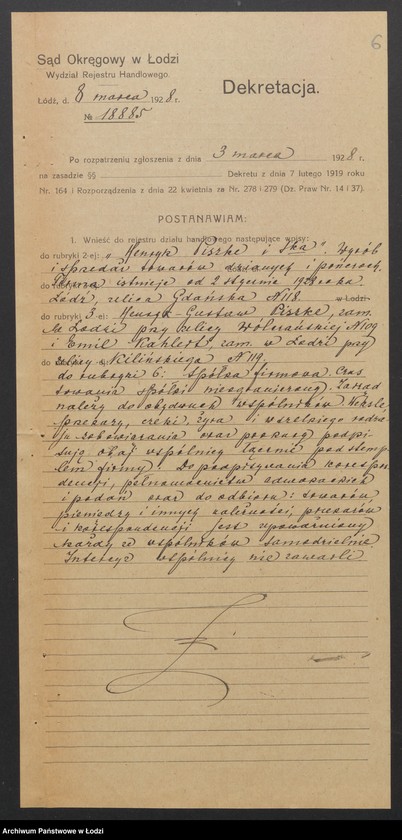 6
Sąd Okręgowy w Łodzi
Wydział Rejestru Handlowego.
Łódź, d. 8 marca 1928 r.
№ 18885
Dekretacja.
Po rozpatrzeniu zgłoszenia z dnia 3 marca 1928 r.
na zasadzie §§ Dekretu z dnia 7 lutego 1919 roku
Nr. 164 i Rozporządzenia z dnia 22 kwietnia za Nr. 278 i 279 (Dz. Praw Nr. 14 i 37).
POSTANAWIAM:
1. Wnieść do rejestru działu handlowego następujące wpisy:
do rubryki 2-ej: „Henryk Piszke i S-ka". Wyrób
i sprzedaż towarów i pończoch.
Firma istnieje od 2 stycznia 1928 roku
Łódź, ulica Gdańska N 118. w Łodzi
do rubryki 3-ej: Henryk-Gustaw Piszke, zam.
w Łodzi przy ulicy Wólczańskiej N 109
i Emil Kahlert, zam. w Łodzi przy
ulicy Kilińskiego N 119.
do rubryki 6: spółka firmowa. Czas
trwania spółki nieograniczony. Zarząd
należy do obydwóch wspólników. Weksle,
przekazy, czeki, żyra i wszelkiego rodza-
ju zobowiązania oraz podpi-
sują obaj wspólnicy łącznie pod stemp-
lem firmy. Do podpisywania korespon-
dencji, pełnomocnictw
i podań oraz do odbioru: towarów,
pieniędzy i innych należności, przekazów
i korespondencji jest upoważniony
każdy ze wspólników samodzielnie.
Intercyz wspólnicy nie zawarli
Archiwum Państwowe w Łodzi